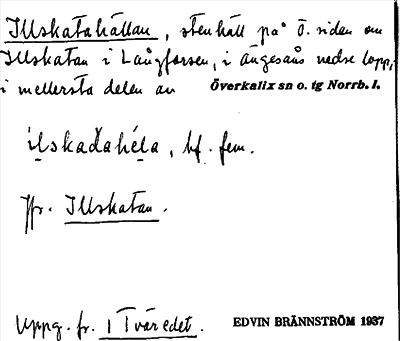 Illskatahällan, stenhäll på Ö. sidan om
Illskatan i Långforsen, i Ängesåns nedre lopp,
i mellersta delen av Överkalix sn o. tg Norrb. l.
i̱lskađahé̱la, bf. fem.
Jfr. Illskatan.
Uppg. fr. 1 Tväredet. EDVIN BRÄNNSTRÖM 1937